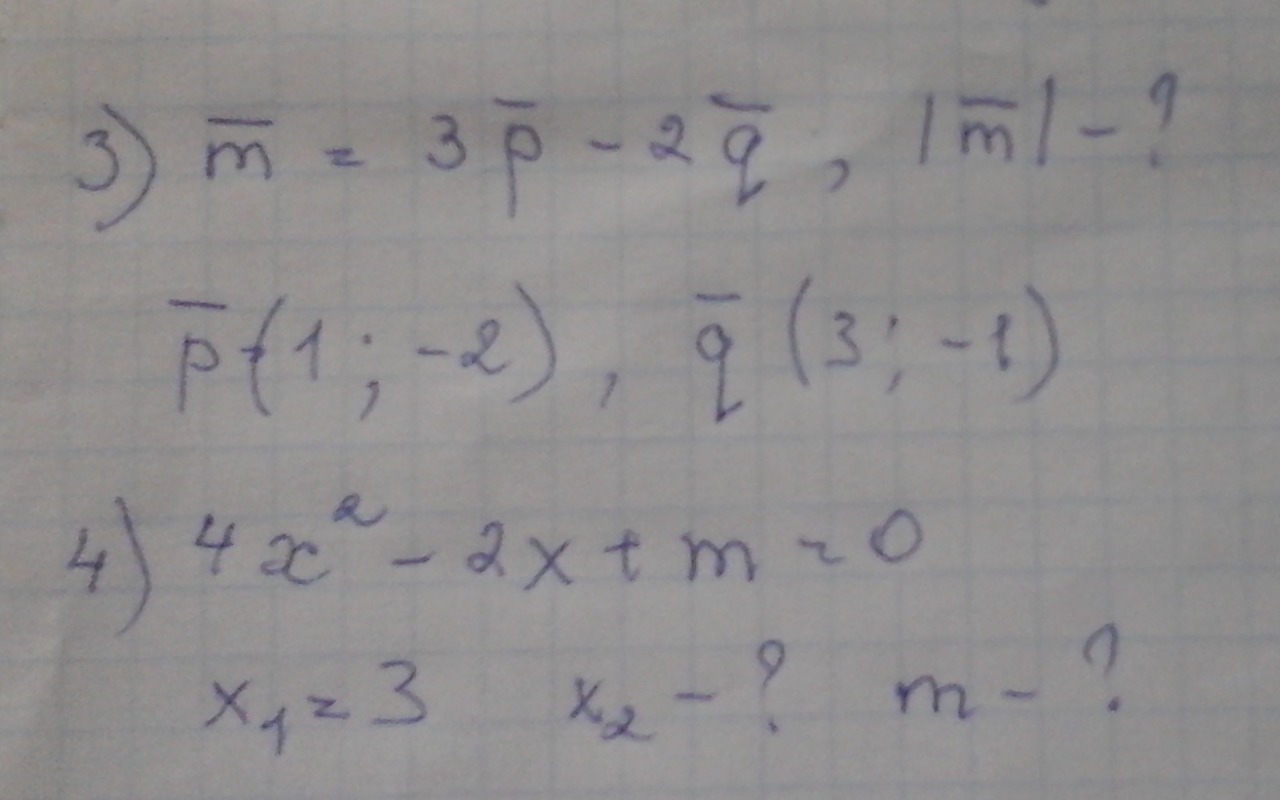 3) m̅ = 3p̅ - 2q̅, |m̅| - ?
p̅ (1; -2), q̅ (3; -1)
4) 4x² - 2x + m = 0
x₁ = 3 x₂ - ? m - ?